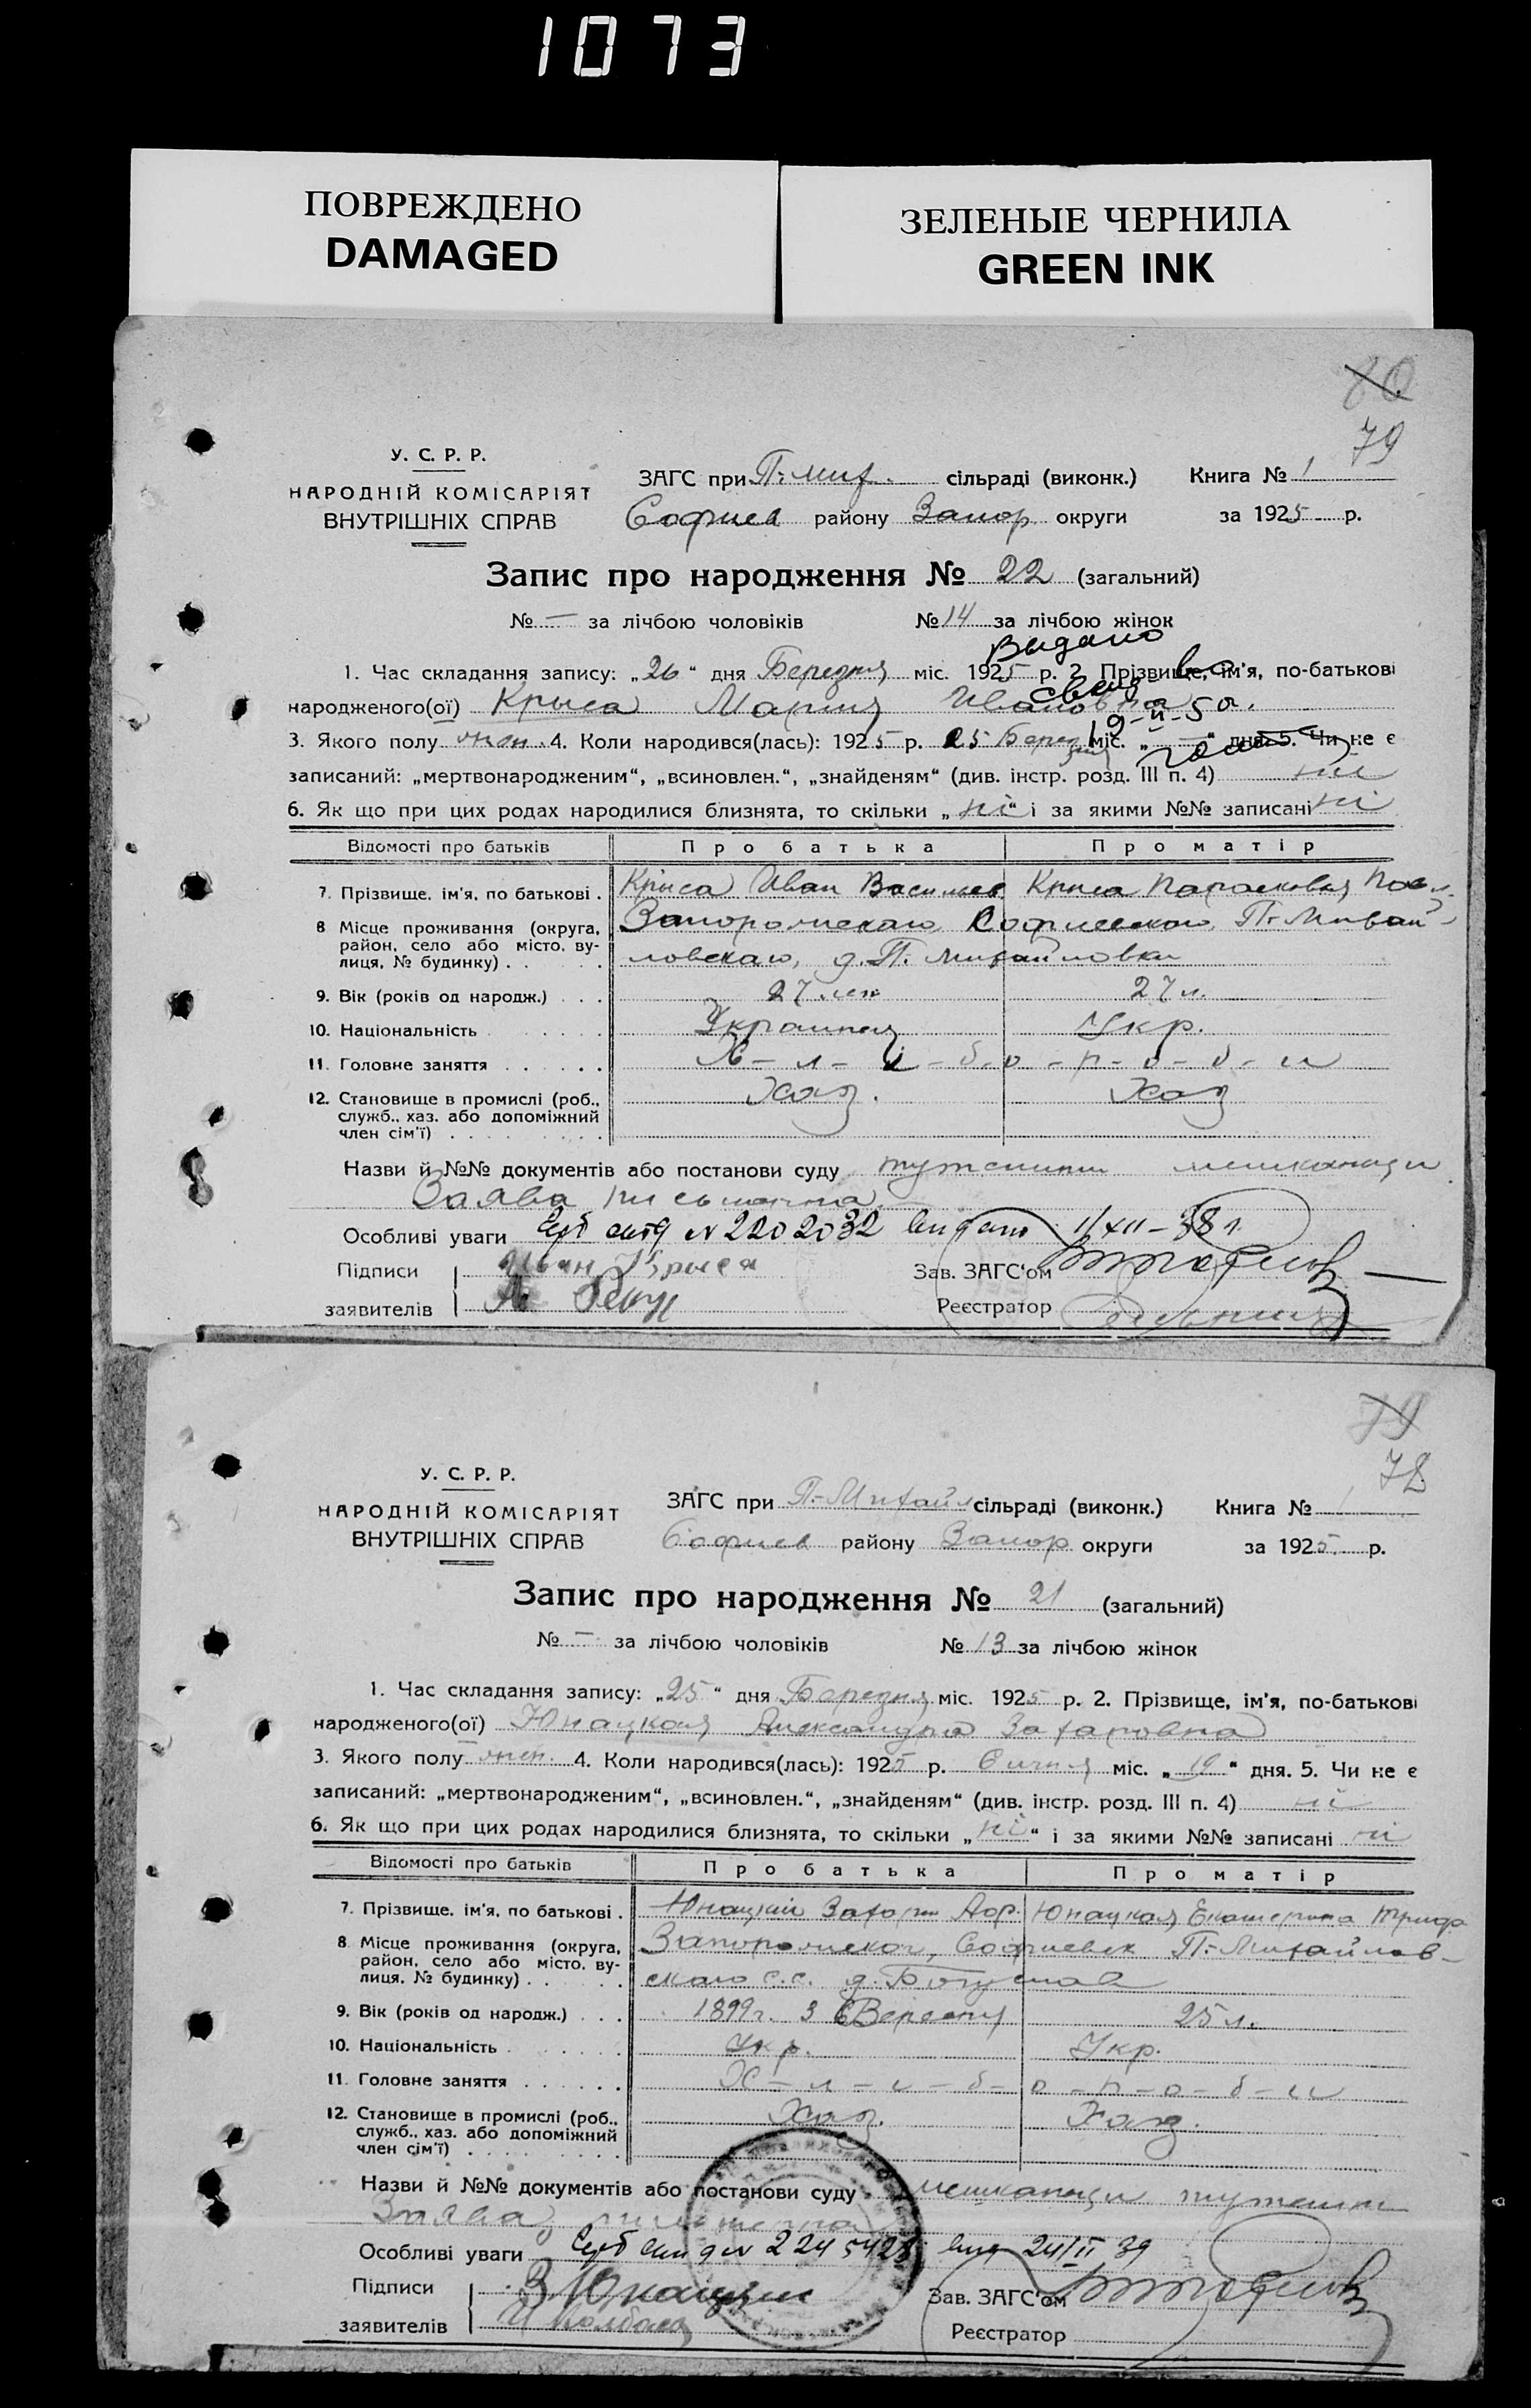 1073
ПОВРЕЖДЕНО
DAMAGED
ЗЕЛЕНЫЕ ЧЕРНИЛА
GREEN INK
80
79
У. С. Р. Р.
НАРОДНІЙ КОМІСАРІЯТ
ВНУТРІШНІХ СПРАВ
ЗАГС при П-мих. сільраді (виконк.) Книга № 1
Софиев району Запор округи за 1925 р.
Запис про народження № 22 (загальний)
№ — за лічбою чоловіків № 14 за лічбою жінок
Выдано
1. Час складання запису: „26“ дня Березня міс. 1925 р. 2. Прізвище, ім'я, по-батькові
народженого(ої) Крыса Мария Ивановна
3. Якого полу жен. 4. Коли народився(лась): 1925 р. 25 Березня міс. „—“ дня 5. Чи не є
записаний: „мертвонародженим“, „всиновлен.“, „знайденям“ (див. інстр. розд. III п. 4) ні
6. Як що при цих родах народилися близнята, то скільки „ні“ і за якими №№ записані ні
Відомості про батьків Про батька Про матір
7. Прізвище, ім'я, по батькові . Крыса Иван Васильев Крыса Парасковья Пав
8 Місце проживання (округа, район, село або місто, вулиця, № будинку) . . Запорожскаго Софиевскаго П-Михай
ловскаго, д. П. Михайловки
9. Вік (років од народж.) . . . 27 лет 27 л.
10. Національність Украинец Укр.
11. Головне заняття Х-л-і-б-о-р-о-б-и
12. Становище в промислі (роб., служб., хаз. або допоміжний член сім'ї) Хаз. Хаз
Назви й №№ документів або постанови суду тутешни мешканци
Заява письменна
Особливі уваги № 2202032 выдано 1/XII-38 г.
Підписи Иван Крыса Зав. ЗАГС'ом
заявителів Реєстратор
79
78
У. С. Р. Р.
НАРОДНІЙ КОМІСАРІЯТ
ВНУТРІШНІХ СПРАВ
ЗАГС при П-Михайл сільраді (виконк.) Книга № 1
Софиев району Запор округи за 1925 р.
Запис про народження № 21 (загальний)
№ — за лічбою чоловіків № 13 за лічбою жінок
1. Час складання запису: „25“ дня Березня міс. 1925 р. 2. Прізвище, ім'я, по-батькові
народженого(ої) Юнацкая Александра Захаровна
3. Якого полу жен. 4. Коли народився(лась): 1925 р. Сичня міс. „19“ дня. 5. Чи не є
записаний: „мертвонародженим“, „всиновлен.“, „знайденям“ (див. інстр. розд. III п. 4) ні
6. Як що при цих родах народилися близнята, то скільки „ні“ і за якими №№ записані ні
Відомості про батьків Про батька Про матір
7. Прізвище, ім'я, по батькові . Юнацкий Захарий Юнацкая Екатерина
8 Місце проживання (округа, район, село або місто, вулиця, № будинку) . . Запорожског, Софиевск П-Михайлов-
скаго с.с. д. Богуслав
9. Вік (років од народж.) . . . 1899 г. 3 Вересня 25 л.
10. Національність Укр. Укр.
11. Головне заняття Х-л-і-б-о-р-о-б-и
12. Становище в промислі (роб., служб., хаз. або допоміжний член сім'ї) Хаз. Хаз.
Назви й №№ документів або постанови суду мешканци тутешни
Заява
Особливі уваги 24/II 39
Підписи З Юнацкий Зав. ЗАГС'ом
заявителів Реєстратор